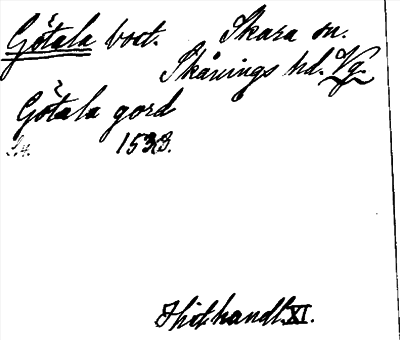 Götala bost. Skara sn.
Skånings hd. Vg.
Götala gord
1533.
Hist. handl. XI.